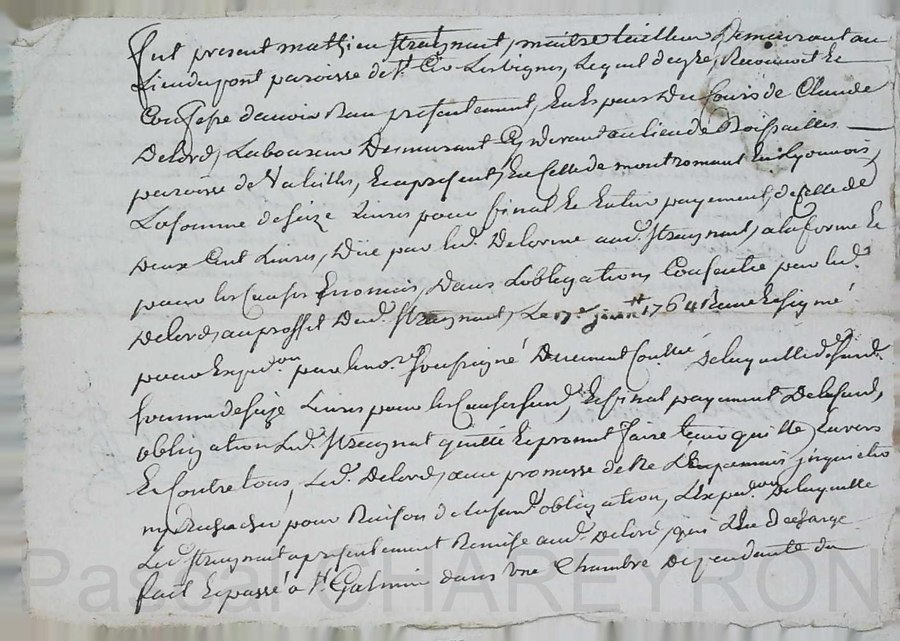 fut present mathieu Stragnat, maitre tailleur Demeurant au
Lieu du pont paroisse de St Les Vignes, Lequel de gre, Reconnoit Et
Confesse davoir Reçu presentement, En Especes Du Cours de Claude
Delord, Laboureur Demeurant Cy devant au lieu de Boissailles
paroisse de Valeilles, Em present, En Celle de montromant En Lyonnois,
La somme de seize Livres pour final Et Entier payement, de Celle de
Deux Cent Livres, Düe par led. Delorme aud. Stragnat, a la forme Et
pour les Causes Enoncées, Dans Lobligations Consentie par led.
Delord, au proffit Dud. Stragnat, Le 17e 1764 Reçue Et signé
pour Expedon par le nore soussigné Duement Controllé De laquelle de sud.
somme de seize Livres pour les Causes sud. Et final payement De lad. sud.
obligation Led. Stragnat quitte Et promet faire tenir quitte Envers
Et Contre tous, Led. Delord, avec promesse de Ne Len jamais jnquieter
ny Rechercher pour Raison de la sud. obligation, L'expedon De laquelle
Led. Stragnat a presentement Remise aud. Delord, qui Len decharge
fait Et passé a St Galmier dans Une Chambre Dependante du
Pascal CHAREYRON